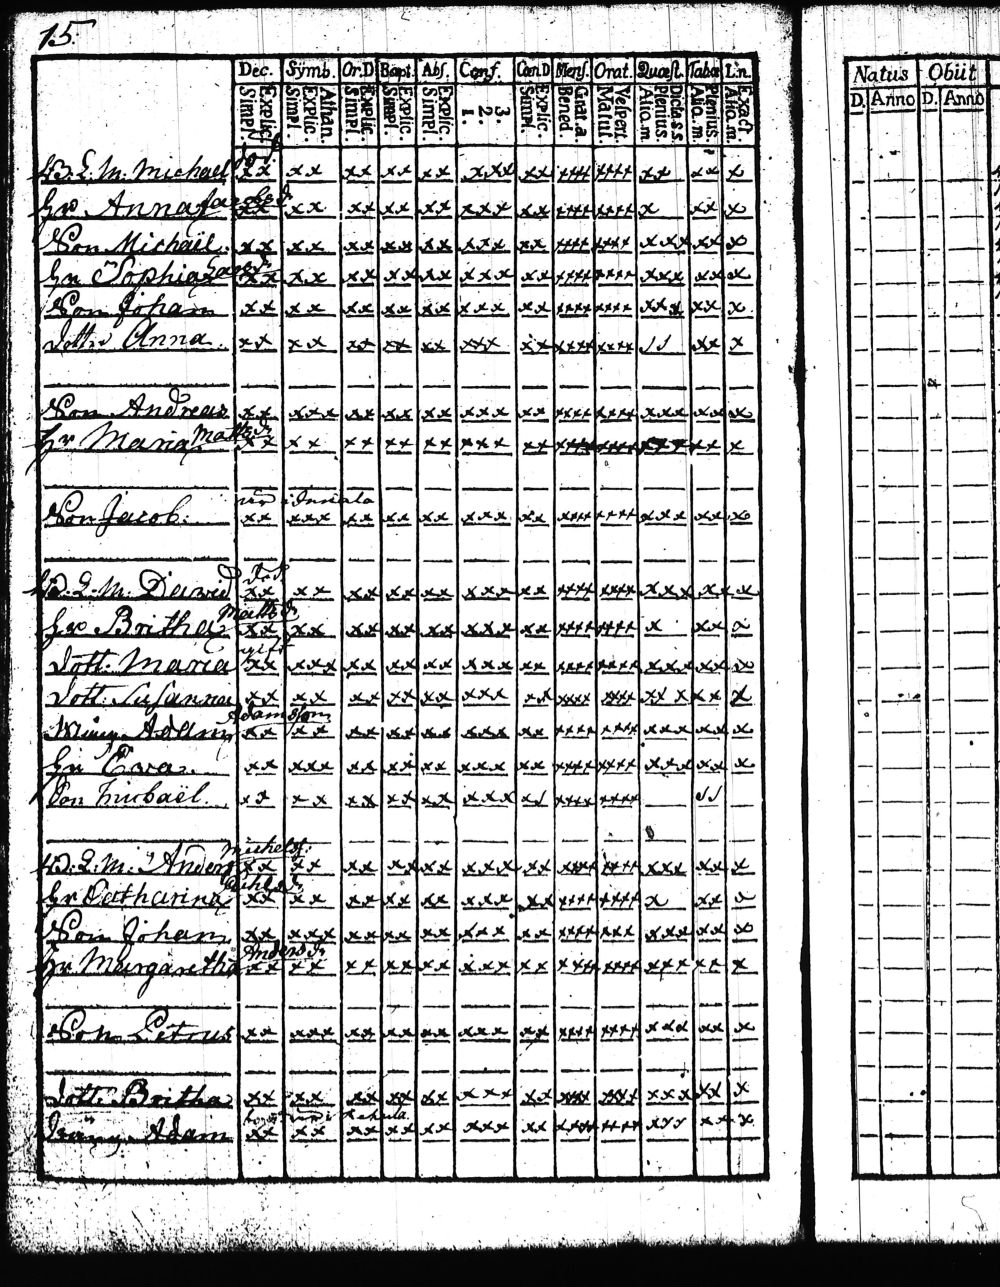 15.
Dec. Sÿmb. Or.D Bapt. Abs. Conf. Cœn.D Mens. Orat. Quæst. Tabœ L'n.
Explic. Simpl. Athan. Explic. Simpl. Explic. Simpl. Explic. Simpl. Explic. Simpl. 3. 2. 1. Explic. Simpl. Grat. a. Bened. Vespert. Matut. Dicta s.s. Plenius. Aliq.m. Plenius. Aliq.m. Exact Aliq.m.
Natus Obiit
D. Anno D. Anno
L. M. Michael xx xx xx xx xx xxx xx xxxx xxxx xx xx x
Hr Anna Jacobsd. xx xx xx xx xx xxx xx xxxx xxxx x xx x
Son Michaël. xx xx xx xx xx xxx xx xxxx xxxx xxx xx x
Hr Sophia xx xx xx xx xx xxx xx xxxx xxxx xxx xx x
Son Johan xx xx xx xx xx xxx xx xxxx xxxx xxx xx x
Dott. Anna xx xx xx xx xx xxx xx xxxx xxxx xx x
Son Andreas xx xxx xx xx xx xxx xx xxxx xxxx xxx xx x
Hr Maria Mattsd. xx xx xx xx xx xxx xx xxxx xxxx xxx xx x
Son Jacob. xx xxx xx xx xx xxx xx xxxx xxxx xxx xx x
L. M. David xx xx xx xx xx xxx xx xxxx xxxx xxx xx x
Hr Britha Mattsd. xx xx xx xx xx xxx xx xxxx xxxx x xx x
gift
Dott. Maria xx xxx xx xx xx xxx xx xxxx xxxx xxx xx x
Dott. Susanna xx xx xx xx xx xxx xx xxxx xxxx xxx xx x
Adamsson
Adam xx xx xx xx xx xxx xx xxxx xxxx xxx xx x
Hr Eva. xx xxx xx xx xx xxx xx xxxx xxxx xxx xx x
Son Michaël. xx xx xx xx xx xxx xxxx xxxx
Michelss.
L. M. Anders xx xx xx xx xx xxx xx xxxx xxxx xxx xx x
Hr Catharina xx xx xx xx xx xxx xx xxxx xxxx x xx x
Son Johan xx xxx xx xx xx xxx xx xxxx xxx xxx xx x
Hr Margaretha Andersd. xx xx xx xx xx xxx xx xxxx xxxx xxx xx x
Son Petrus xx xxx xx xx xx xxx xx xxxx xxxx xxx xx x
Dott. Britha xx xx xx xx xx xxx xx xxxx xxxx xxx xx x
Adam xx xx xx xx xx xxx xx xxxx xxxx xx x